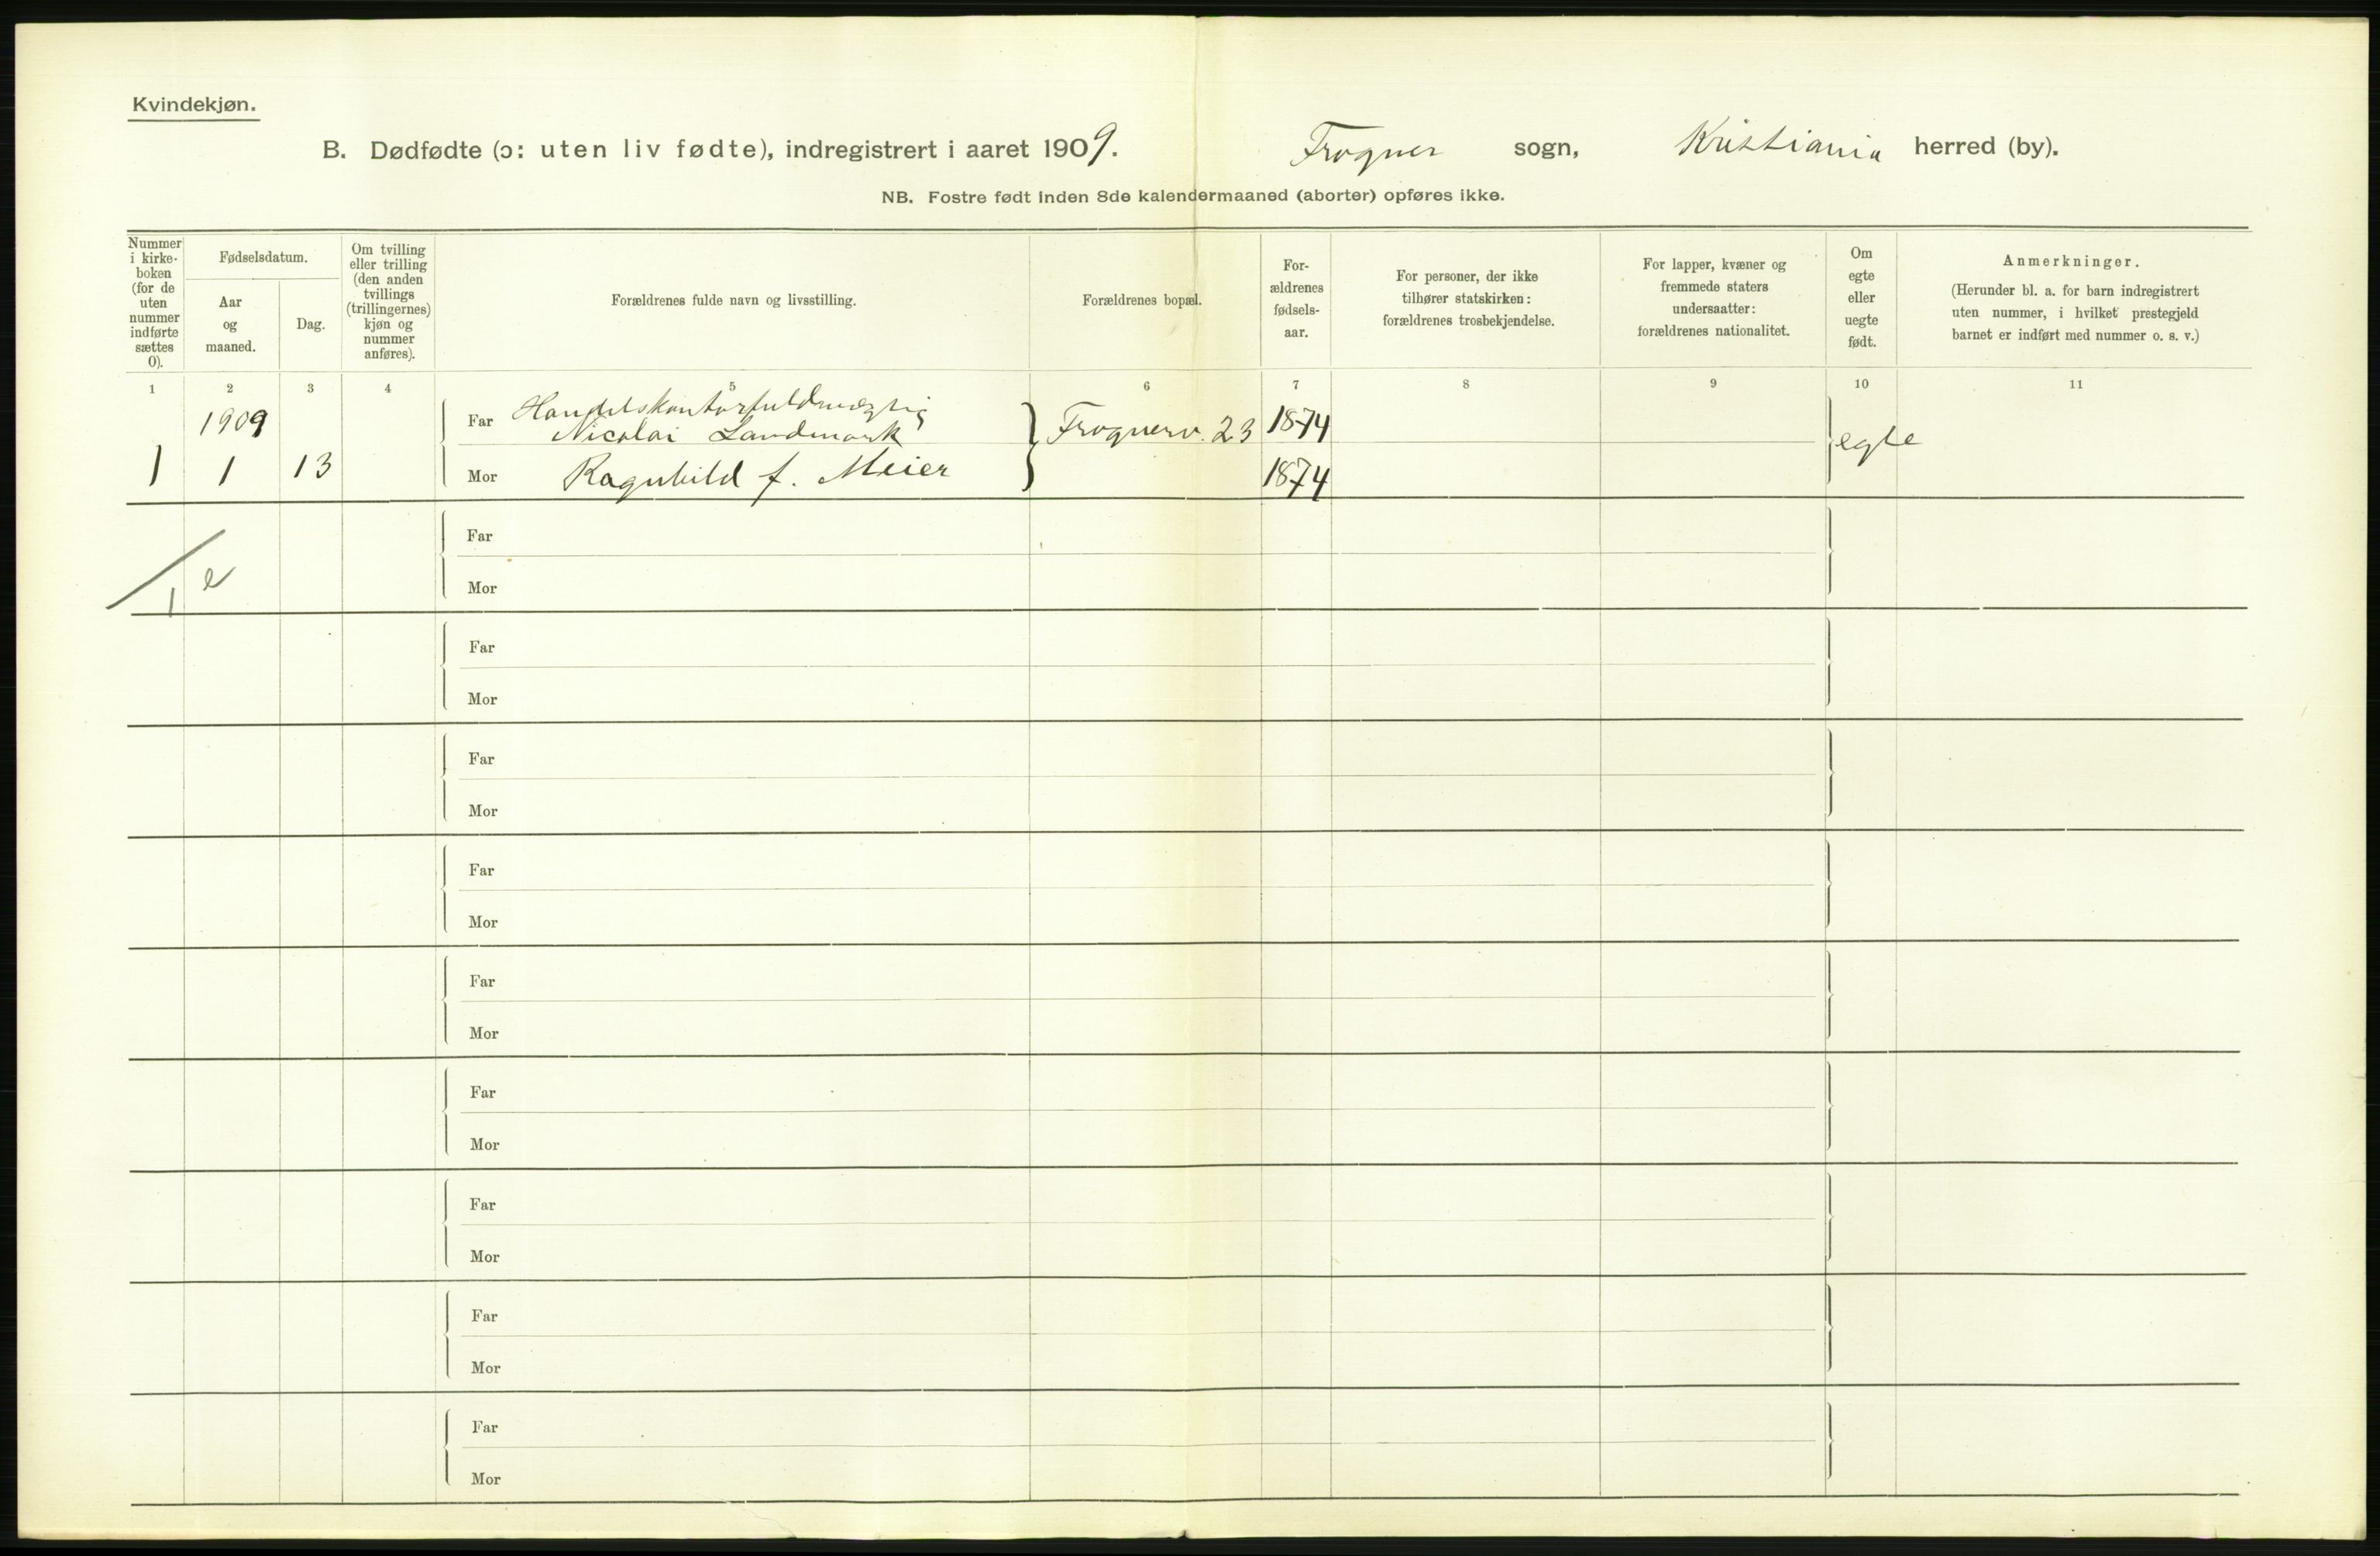 Kvindekjøn.
B. Dødfødte (ɔ: uten liv fødte), indregistrert i aaret 1909. Frogner sogn, Kristiania herred (by).
NB. Fostre født inden 8de kalendermaaned (aborter) opføres ikke.
Nummer
i kirke-
boken
(for de
uten
nummer
indførte
sættes
0).
Fødselsdatum.
Aar
og
maaned.
Dag.
Om tvilling
eller trilling
(den anden
tvillings
(trillingernes)
kjøn og
nummer
anføres).
Forældrenes fulde navn og livsstilling.
Forældrenes bopæl.
For-
ældrenes
fødsels-
aar.
For personer, der ikke
tilhører statskirken:
forældrenes trosbekjendelse.
For lapper, kvæner og
fremmede staters
undersaatter:
forældrenes nationalitet.
Om
egte
eller
uegte
født.
Anmerkninger.
(Herunder bl. a. for barn indregistrert
uten nummer, i hvilket prestegjeld
barnet er indført med nummer o. s. v.)
1 2 3 4 5 6 7 8 9 10 11
Handelskontorfuldmægtig
1909 Far Nicolai Landmark Frognerv. 23 1874 egte
1 1 13 Mor Ragnhild f. Meier 1874
Far
1 e
Mor
Far
Mor
Far
Mor
Far
Mor
Far
Mor
Far
Mor
Far
Mor
Far
Mor
Far
Mor